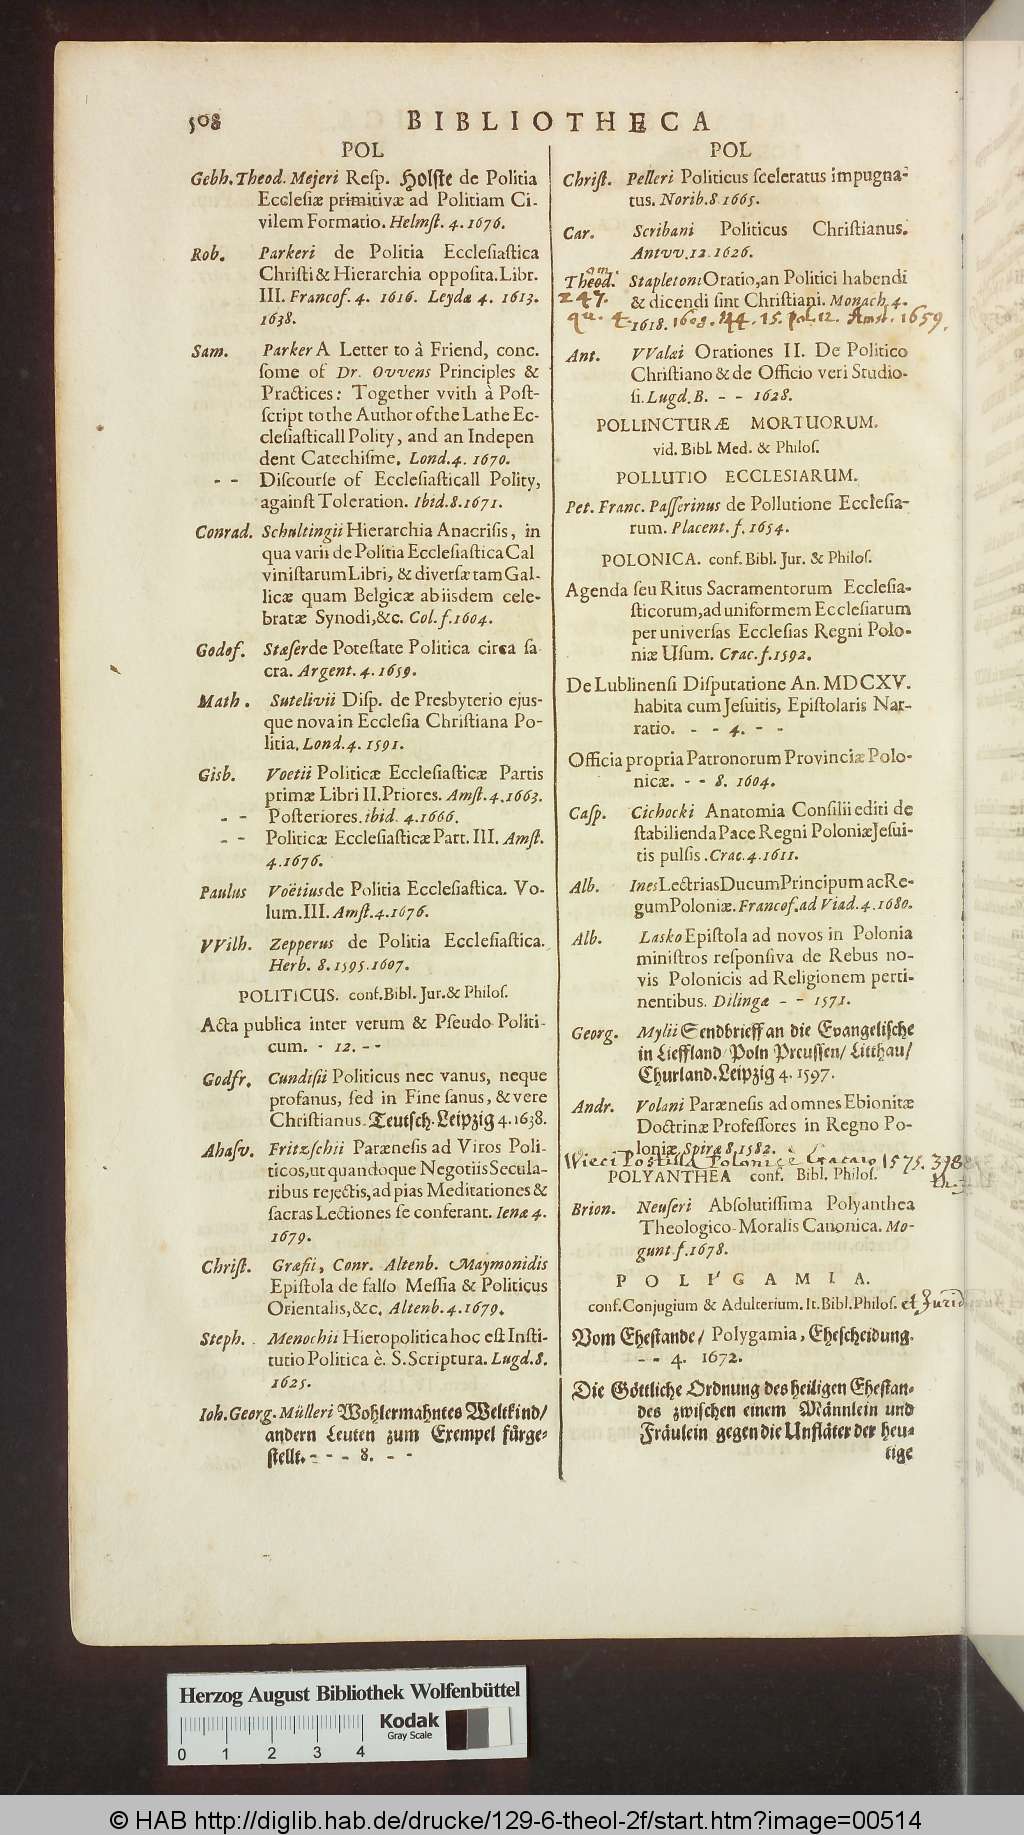 508
BIBLIOTHECA
POL
Gebh. Theod. Mejeri Resp. Holste de Politia
Ecclesiæ primitivæ ad Politiam Ci-
vilem Formatio. Helmst. 4. 1676.
Rob. Parkeri de Politia Ecclesiastica
Christi & Hierarchia opposita. Libr.
III. Francof. 4. 1616. Leydæ 4. 1613.
1638.
Sam. Parker A Letter to à Friend, conc.
some of Dr. Ovvens Principles &
Practices: Together vvith à Post-
script to the Author of the Lathe Ec-
clesiasticall Polity, and an Indepen
dent Catechisme. Lond. 4. 1670.
- - Discourse of Ecclesiasticall Polity,
against Toleration. Ibid. 8. 1671.
Conrad. Schultingii Hierarchia Anacrisis, in
qua varii de Politia Ecclesiastica Cal
vinistarum Libri, & diversæ tam Gal-
licæ quam Belgicæ ab iisdem cele-
bratæ Synodi, &c. Col. f. 1604.
Godof. Stæser de Potestate Politica circa sa
cra. Argent. 4. 1659.
Math. Sutelivii Disp. de Presbyterio ejus-
que nova in Ecclesia Christiana Po-
litia. Lond. 4. 1591.
Gisb. Voetii Politicæ Ecclesiasticæ Partis
primæ Libri II. Priores. Amst. 4. 1663.
- - Posteriores. ibid. 4. 1666.
- - Politicæ Ecclesiasticæ Part. III. Amst.
4. 1676.
Paulus Voëtius de Politia Ecclesiastica. Vo-
lum. III. Amst. 4. 1676.
VVilh. Zepperus de Politia Ecclesiastica.
Herb. 8. 1595. 1607.
POLITICUS. conf. Bibl. Jur. & Philos.
Acta publica inter verum & Pseudo Politi-
cum. - 12. - -
Godfr. Cundisii Politicus nec vanus, neque
profanus, sed in Fine sanus, & vere
Christianus. Teutsch. Leipzig 4. 1638.
Ahasv. Fritzschii Parænesis ad Viros Poli-
ticos, ut quandoque Negotiis Secula-
ribus rejectis, ad pias Meditationes &
sacras Lectiones se conferant. Ienæ 4.
1679.
Christ. Græfii, Conr. Altenb. Maymonidis
Epistola de falso Messia & Politicus
Orientalis, &c. Altenb. 4. 1679.
Steph. Menochii Hieropolitica hoc est Insti-
tutio Politica è. S. Scriptura. Lugd. 8.
1625.
Ioh. Georg. Mülleri Wohlermahntes Weltkind/
andern Leuten zum Exempel fürge-
stellt. - - - 8. - -
POL
Christ. Pelleri Politicus sceleratus impugna-
tus. Norib. 8 1665.
Car. Scribani Politicus Christianus.
Antvv. 12. 1626.
Theod. Stapletoni Oratio, an Politici habendi
247. & dicendi sint Christiani. Monach. 4.
qu. 4. 1618. 1608. 244. 15. pol. 12. Amst. 1659.
Ant. VValai Orationes II. De Politico
Christiano & de Officio veri Studio-
si. Lugd. B. - - 1628.
POLLINCTURÆ MORTUORUM.
vid. Bibl. Med. & Philos.
POLLUTIO ECCLESIARUM.
Pet. Franc. Passerinus de Pollutione Ecclesia-
rum. Placent. f. 1654.
POLONICA. conf. Bibl. Jur. & Philos.
Agenda seu Ritus Sacramentorum Ecclesia-
sticorum, ad uniformem Ecclesiarum
per universas Ecclesias Regni Polo-
niæ Usum. Crac. f. 1592.
De Lublinensi Disputatione An. MDCXV.
habita cum Jesuitis, Epistolaris Nar-
ratio. - - 4. - -
Officia propria Patronorum Provinciæ Polo-
nicæ. - - 8. 1604.
Casp. Cichocki Anatomia Consilii editi de
stabilienda Pace Regni Poloniæ Jesui-
tis pulsis. Crac. 4. 1611.
Alb. Ines Lectrias Ducum Principum ac Re-
gum Poloniæ. Francof. ad Viad. 4. 1680.
Alb. Lasko Epistola ad novos in Polonia
ministros responsiva de Rebus no-
vis Polonicis ad Religionem perti-
nentibus. Dilingæ - - 1571.
Georg. Mylii Sendbrieff an die Evangelische
in Lieffland Poln Preussen/ Litthau/
Churland. Leipzig 4. 1597.
Andr. Volani Parænesis ad omnes Ebionitæ
Doctrinæ Professores in Regno Po-
loniæ. Spiræ 8. 1582.
Wieci Postilla Polonice Cracaw 1575. 398
POLYANTHEA conf. Bibl. Philos.
Brion. Neuseri Absolutissima Polyanthea
Theologico-Moralis Canonica. Mo-
gunt. f. 1678.
POLIGAMIA.
conf. Conjugium & Adulterium. It. Bibl. Philos. et Jurid
Vom Ehestande/ Polygamia, Ehescheidung.
- - 4. 1672.
Die Göttliche Ordnung des heiligen Ehestan-
des zwischen einem Männlein und
Fräulein gegen die Unfläter der heu-
tige
Herzog August Bibliothek Wolfenbüttel
Kodak
Gray Scale
0 1 2 3 4
© HAB http://diglib.hab.de/drucke/129-6-theol-2f/start.htm?image=00514